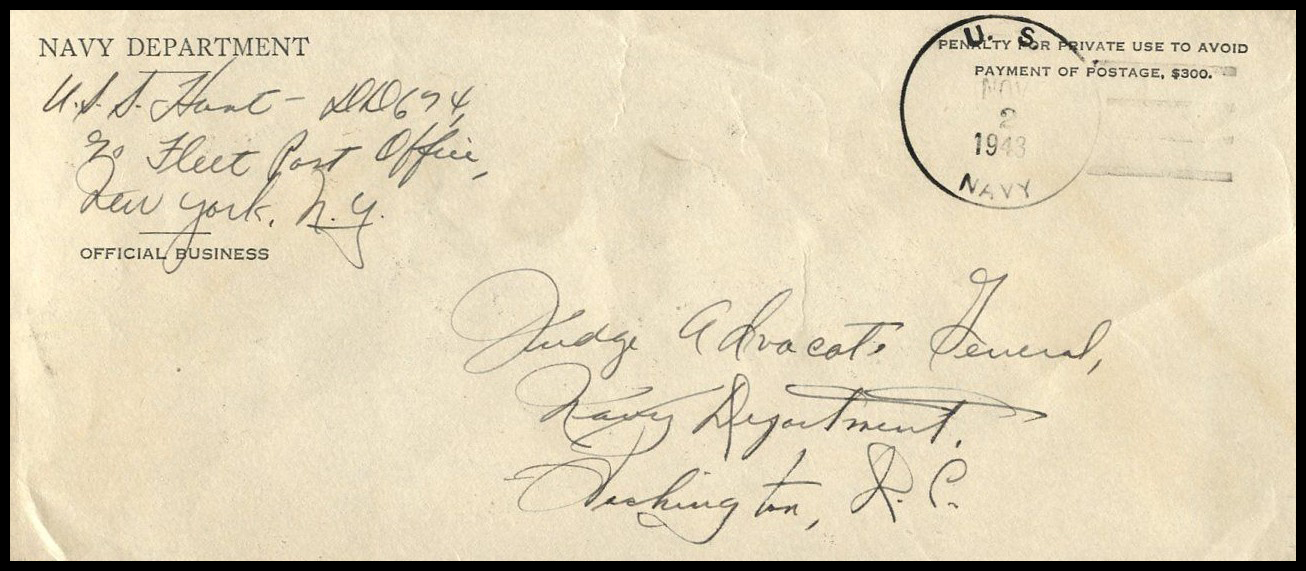 NAVY DEPARTMENT
U.S.S. Hunt - DD674,
c/o Fleet Post Office,
New York, N.Y.
OFFICIAL BUSINESS
PENALTY FOR PRIVATE USE TO AVOID
PAYMENT OF POSTAGE, $300.
U. S.
NOV
2
1943
NAVY
Judge Advocate General,
Navy Department,
Washington, D.C.